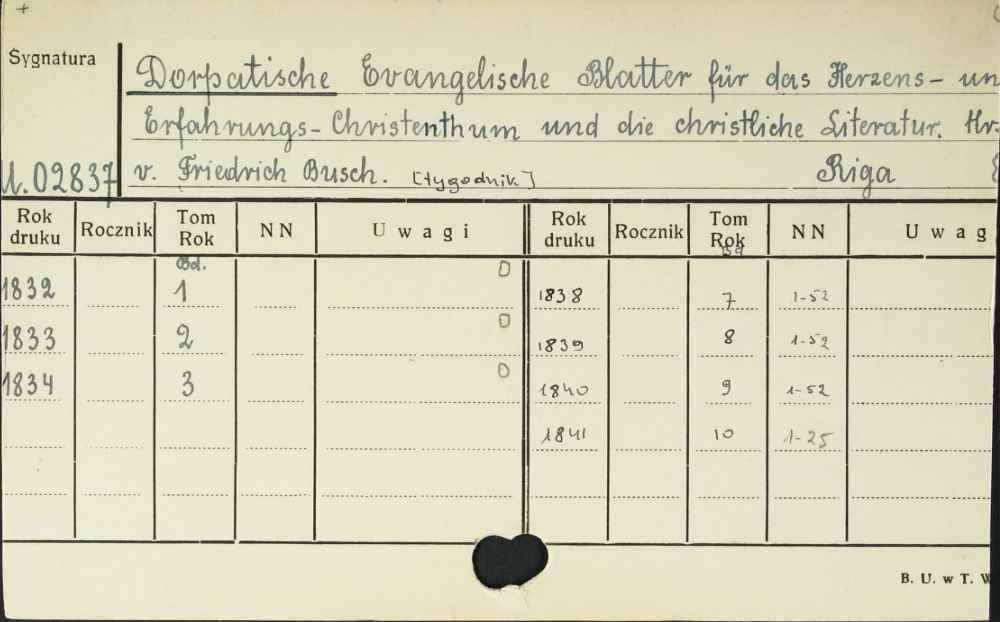 Sygnatura
Dorpatische Evangelische Blatter für das Herzens- un
Erfahrungs-Christenthum und die christliche Literatur. Hr-
U.02837 v. Friedrich Busch. [tygodnik] Riga
Rok druku Rocznik Tom Rok NN Uwagi Rok druku Rocznik Tom Rok NN Uwag
Bd. Bd
1832 1 D 1838 7 1-52
1833 2 D 1839 8 1-52
1834 3 D 1840 9 1-52
1841 10 1-25
B. U. w T. W